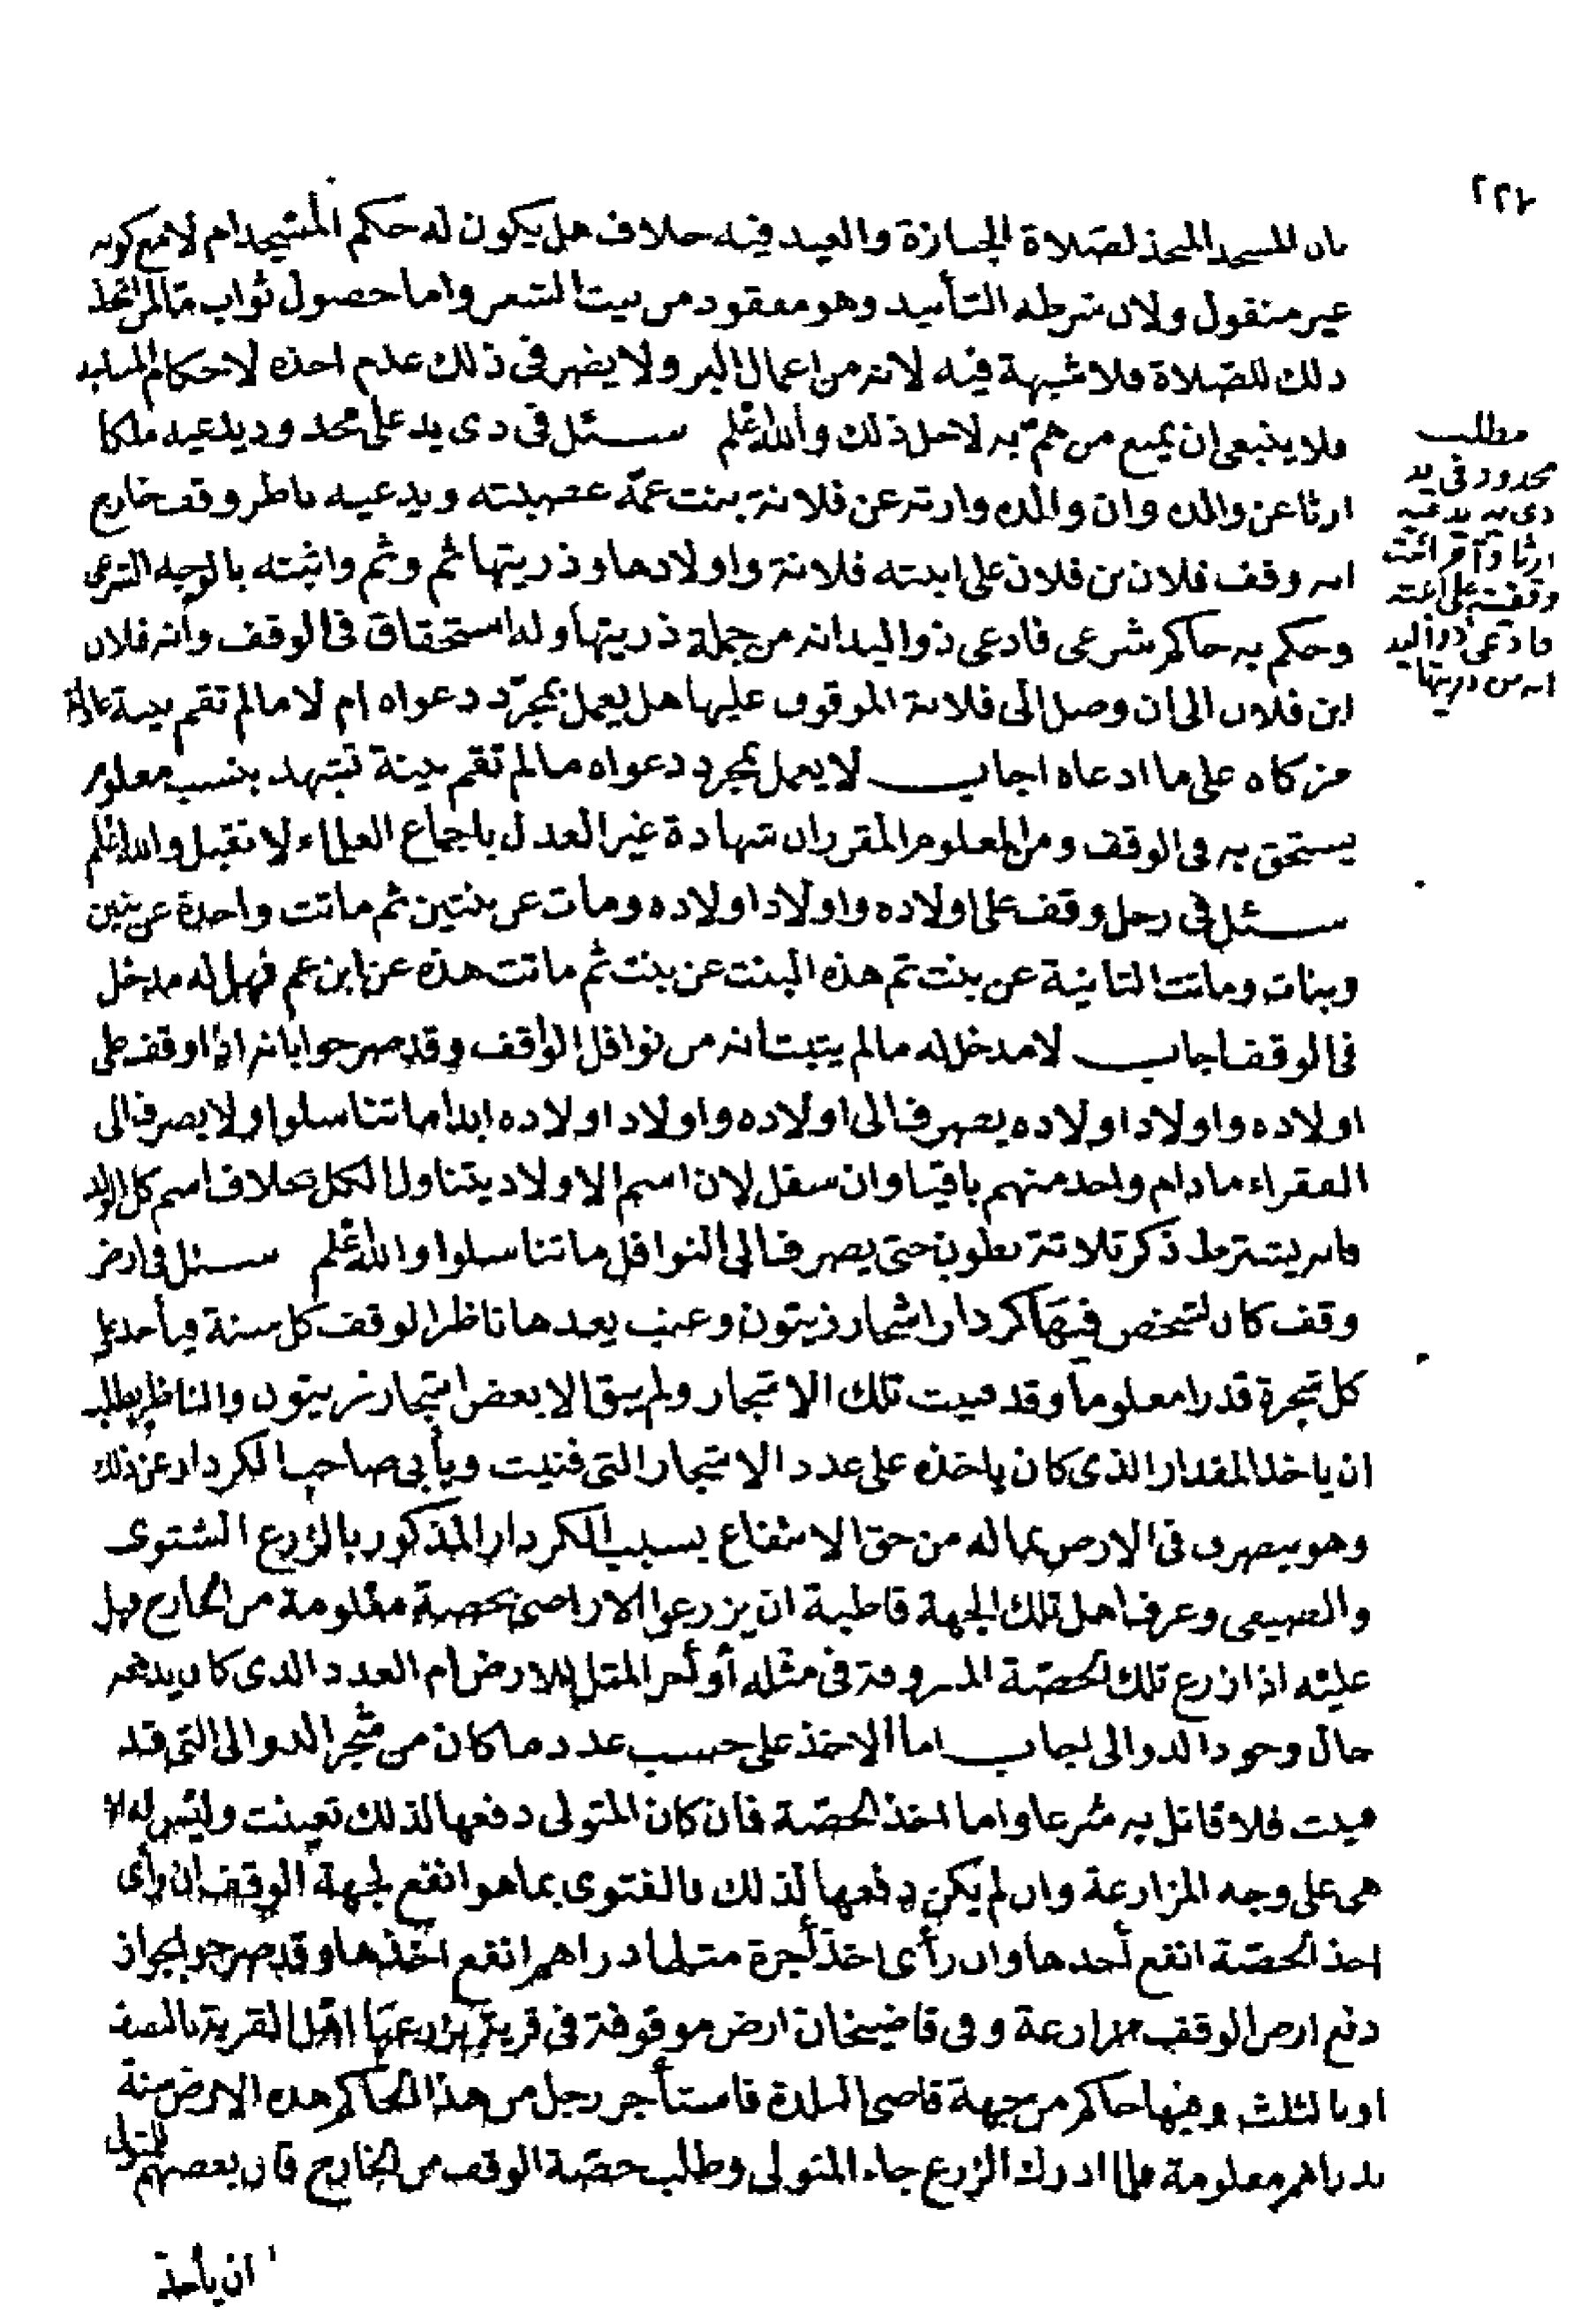 ٢٢٢
بان المسجد المتخذ لصلاة الجنازة والعيد فيه خلاف هل يكون له حكم المسجد ام لا مع كونه
غير منقول ولان شرطه التأبيد وهو مفقود من بيت الشعر واما حصول ثواب ما لمن اتخذ
ذلك للصلاة فلا شبهة فيه لانه من اعمال البر ولا يضر فى ذلك عدم اخذه لاحكام المساجد
فلا ينبغى ان يمنع من هم به لاجل ذلك والله اعلم سئل فى ذى يد على محدود يدعيه ملكا
ارثا عن والده وان والده وارثه عن فلانة بنت عمة عصبته ويدعيه ناظر وقف خارج
انه وقف فلان بن فلان على ابنته فلانة واولادها وذريتها ثم وثم واثبته بالوجه الشرعى
وحكم به حاكم شرعى فادعى ذو اليد انه من جملة ذريتها وله استحقاق فى الوقف وانه فلان
ابن فلان الى ان وصل الى فلانة الموقوف عليها هل يعمل بمجرد دعواه ام لا مالم تقم بينة عادلة
مزكاه على ما ادعاه اجاب لا يعمل بمجرد دعواه مالم تقم بينة تشهد بنسب معلوم
يستحق به فى الوقف ومن المعلوم المقرر ان شهادة غير العدل باجماع العلماء لا تقبل والله اعلم
سئل فى رجل وقف على اولاده واولاد اولاده ومات عن بنتين ثم ماتت واحدة عن بنين
وبنات وماتت الثانية عن بنت ثم هذه البنت عن بنت ثم ماتت هذه عن ابن عم فهل له مدخل
فى الوقف اجاب لا مدخل له مالم يثبت انه من نوافل الواقف وقد صرحوا بانه اذا وقف على
اولاده واولاد اولاده يصرف الى اولاده واولاد اولاده ابدا ما تناسلوا ولا يصرف الى
الفقراء مادام واحد منهم باقيا وان سفل لان اسم الاولاد يتناول الكل بخلاف اسم الولد
فانه يشترط ذكر ثلاثة بطون حتى يصرف الى النوافل ما تناسلوا والله اعلم سئل فى ارض
وقف كان لشخص فيها كردار اشجار زيتون وعنب يعدها ناظر الوقف كل سنة فيأخذ على
كل شجرة قدرا معلوما وقد فنيت تلك الاشجار ولم يبق الا بعض اشجار زيتون والناظر يطلب
ان ياخذ المقدار الذى كان ياخذه على عدد الاشجار التى فنيت ويأبى صاحب الكردار عن ذلك
وهو يتصرف فى الارض بما له من حق الانتفاع بسبب الكردار المذكور بالزرع الشتوى
والصيفى وعرف اهل تلك الجهة قاطبة ان يزرعوا الاراضى بحصة معلومة من الخارج فهل
عليه اذا زرع تلك الحصة المعروفة فى مثله أو أجر المثل للارض ام العدد الذى كان يدفعه
حال وجود الدوالى اجاب اما الاخذ على حسب عدد ما كان من شجر الدوالى التى قد
فنيت فلا قائل به شرعا واما اخذ الحصة فان كان المتولى دفعها لذلك تعينت وليس له الا
هى على وجه المزارعة وان لم يكن دفعها لذلك فالفتوى بما هو انفع لجهة الوقف ان رأى
اخذ الحصة انفع أخذها وان رأى اخذ أجرة مثلها دراهم انفع اخذها وقد صرحوا بجواز
دفع ارض الوقف مزارعة وفى قاضيخان ارض موقوفة فى قرية يزرعها اهل القرية بالنصف
او بالثلث وفيها حاكم من جهة قاضى البلدة فاستأجر رجل من هذا الحاكم هذه الارض سنة
بدراهم معلومة فلما ادرك الزرع جاء المتولى وطلب حصة الوقف من الخارج قال بعضهم للمتولى
ان يأخذ
مطلب
محدود فى يد
ذى يد يدعيه
ارثا وآخر اثبت
وقفيته على ابنته
فادعى ذو اليد
انه من ذريتها